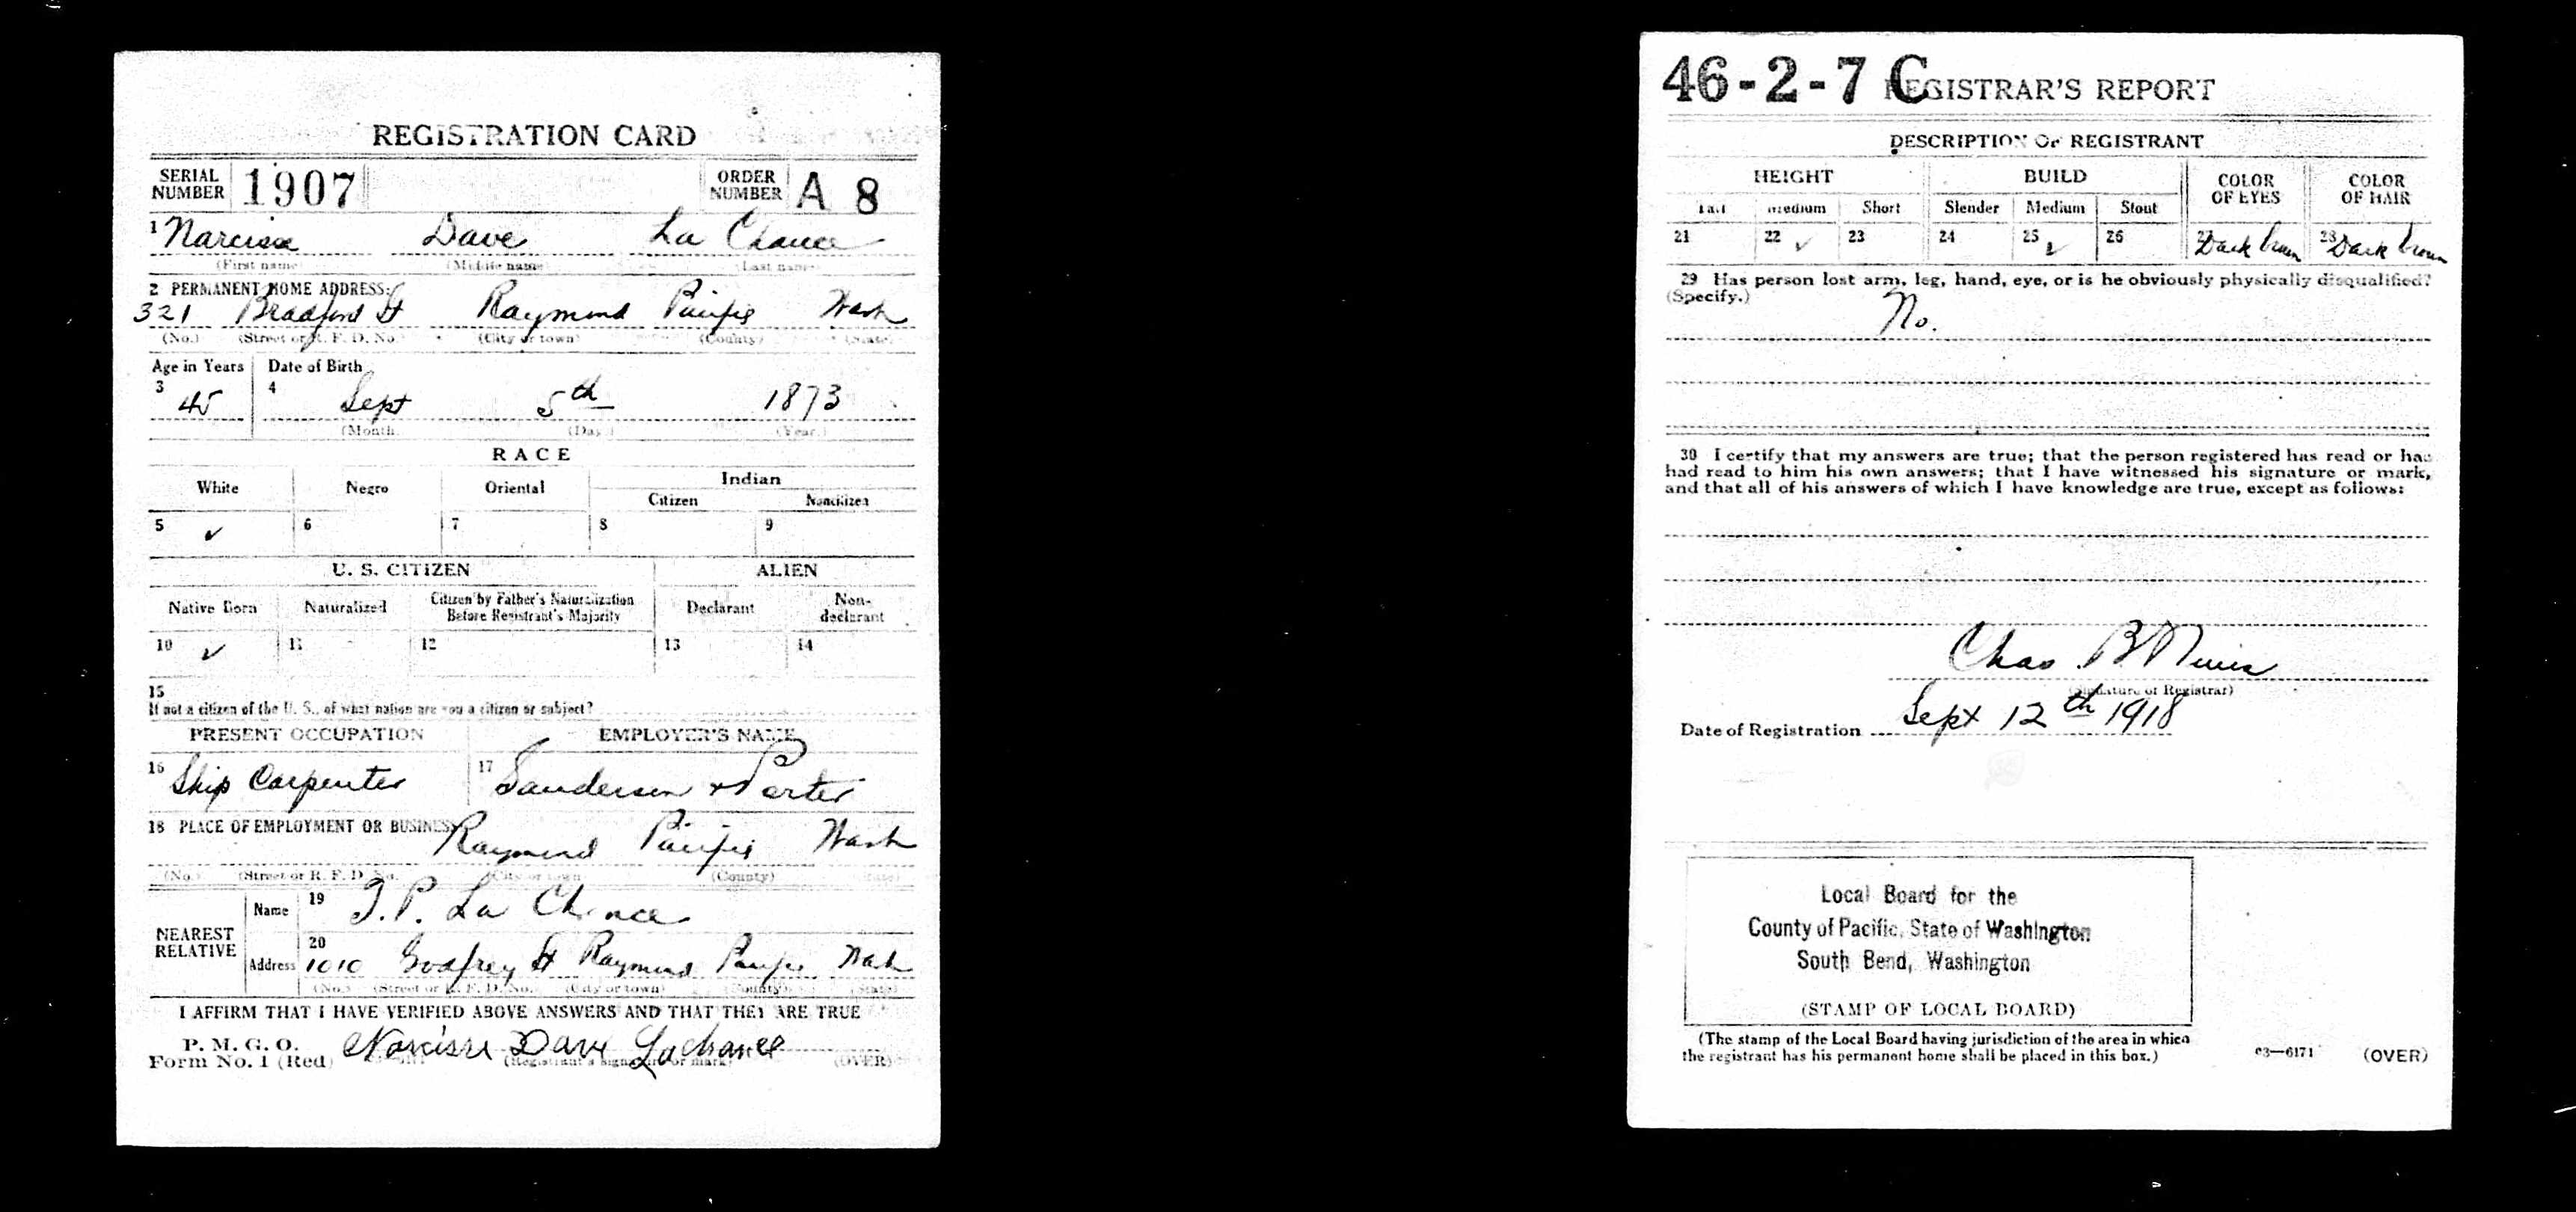 REGISTRATION CARD
SERIAL NUMBER 1907 ORDER NUMBER A 8
1 Narcisse Dave La Chance
(First name) (Middle name) (Last name)
2 PERMANENT HOME ADDRESS:
321 Bradford St Raymond Pacific Wash
(No.) (Street or R. F. D. No.) (City or town) (County) (State)
Age in Years Date of Birth
3 45 4 Sept 5th 1873
(Month.) (Day.) (Year.)
RACE
White Negro Oriental Indian
Citizen Noncitizen
5 ✓ 6 7 8 9
U. S. CITIZEN ALIEN
Native Born Naturalized Citizen by Father's Naturalization Before Registrant's Majority Declarant Non-declarant
10 ✓ 11 12 13 14
15
If not a citizen of the U. S., of what nation are you a citizen or subject?
PRESENT OCCUPATION EMPLOYER'S NAME
16 Ship Carpenter 17 Sanderson + Porter
18 PLACE OF EMPLOYMENT OR BUSINESS
Raymond Pacific Wash
(No.) (Street or R. F. D. No.) (City or town) (County) (State)
NEAREST RELATIVE Name 19 T. P. La Chance
Address 20 1010 Godfrey St Raymond Pacific Wash
(No.) (Street or R. F. D. No.) (City or town) (County) (State)
I AFFIRM THAT I HAVE VERIFIED ABOVE ANSWERS AND THAT THEY ARE TRUE
P. M. G. O.
Form No. 1 (Red) Narcisse Dave Lachance
(Registrant's signature or mark) (OVER)
46-2-7 C REGISTRAR'S REPORT
DESCRIPTION OF REGISTRANT
HEIGHT BUILD COLOR OF EYES COLOR OF HAIR
Tall Medium Short Slender Medium Stout
21 22 ✓ 23 24 25 ✓ 26 27 Dark brown 28 Dark brown
29 Has person lost arm, leg, hand, eye, or is he obviously physically disqualified?
(Specify.) No.
30 I certify that my answers are true; that the person registered has read or has
had read to him his own answers; that I have witnessed his signature or mark,
and that all of his answers of which I have knowledge are true, except as follows:
Chas. B
(Signature of Registrar)
Date of Registration Sept 12th 1918
Local Board for the
County of Pacific, State of Washington
South Bend, Washington
(STAMP OF LOCAL BOARD)
(The stamp of the Local Board having jurisdiction of the area in which
the registrant has his permanent home shall be placed in this box.)
03—6171 (OVER)